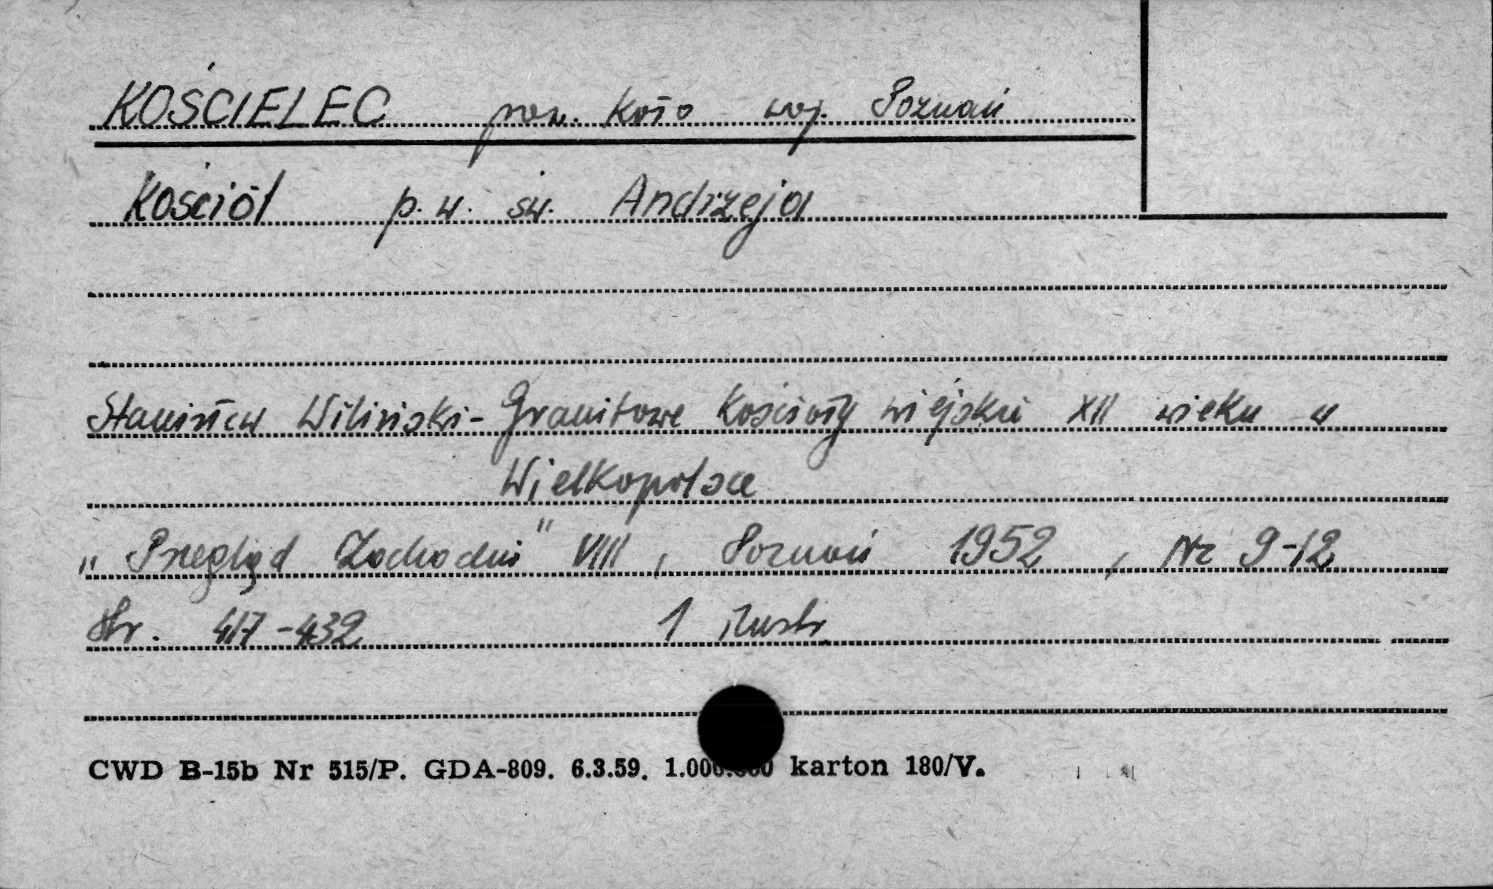 KOŚCIELEC pow. Koło woj. Poznań
Kościół p.w. św. Andrzeja
Stanisław Wiliński - Granitowe Kościoły wiejskie XII wieku w
Wielkopolsce
„Przegląd Zachodni" VIII, Poznań 1952, Nr 9-12
Str. 417-432 1 ilustr
CWD B-15b Nr 515/P. GDA-809. 6.3.59. 1.000.000 karton 180/V.